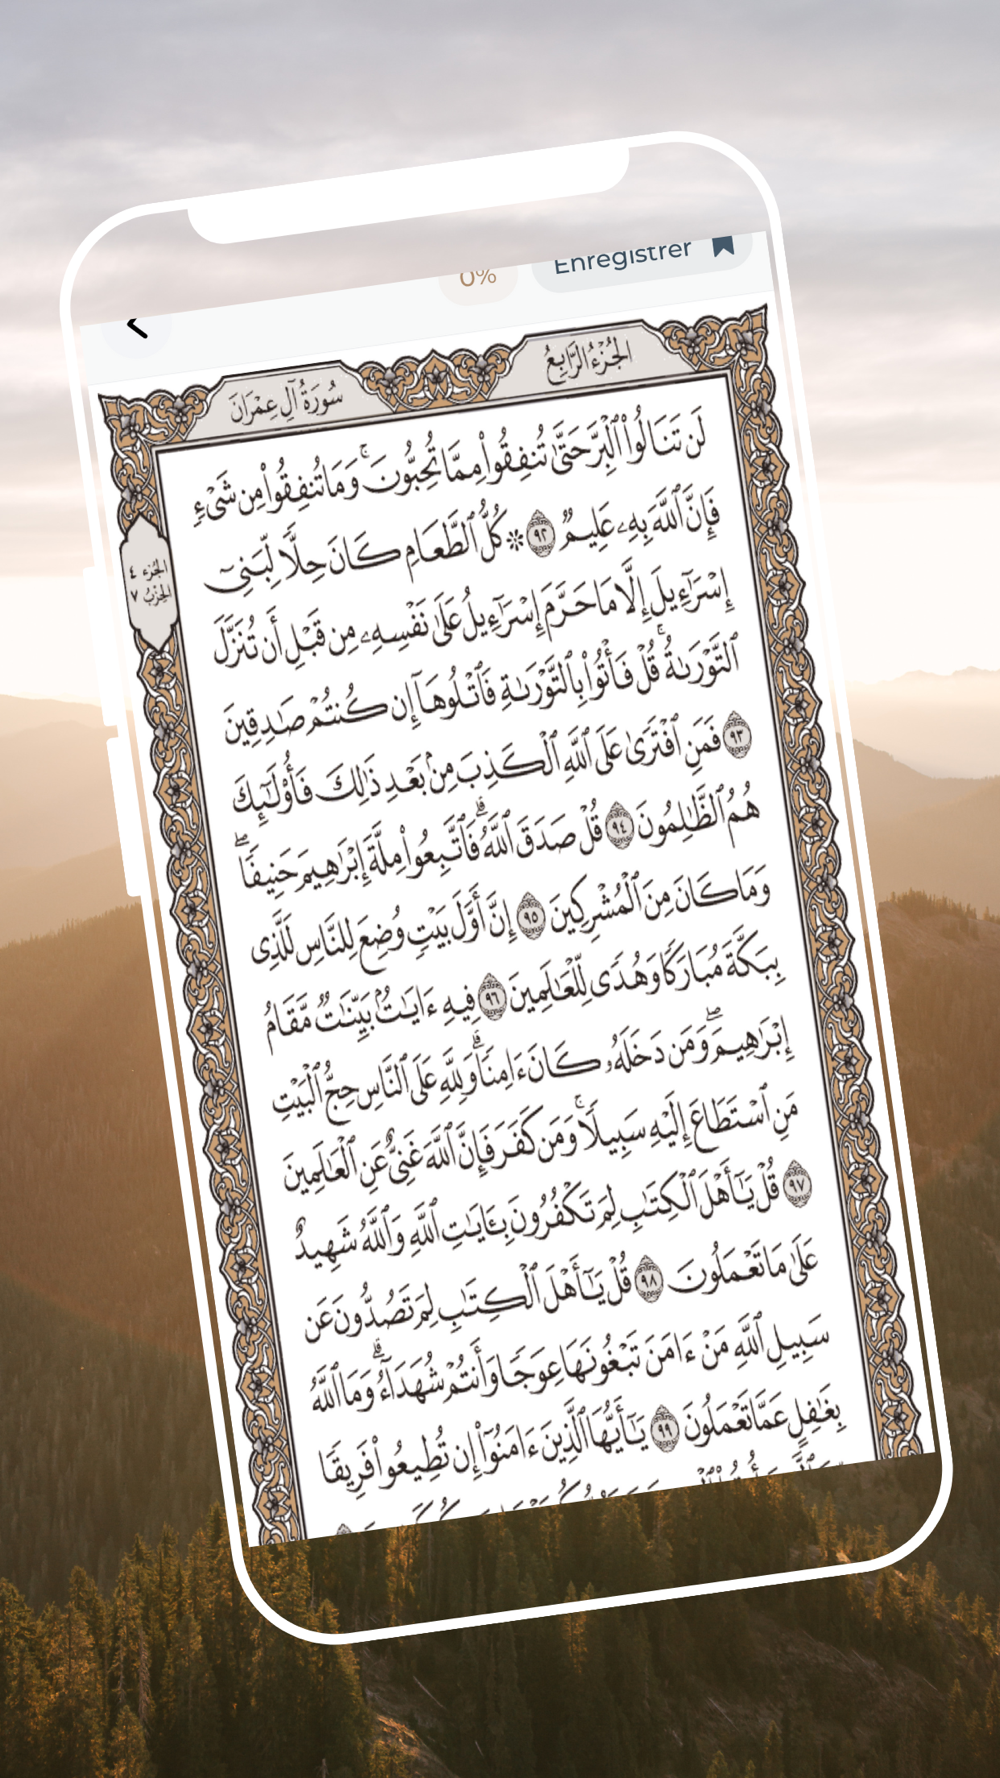 Enregistrer
0%
الجُزْءُ الرَّابِعُ
سُورَةُ آلِ عِمْرَانَ
لَن تَنَالُوا۟ ٱلْبِرَّ حَتَّىٰ تُنفِقُوا۟ مِمَّا تُحِبُّونَ ۚ وَمَا تُنفِقُوا۟ مِن شَىْءٍ
فَإِنَّ ٱللَّهَ بِهِۦ عَلِيمٌ ٩٢ ۞ كُلُّ ٱلطَّعَامِ كَانَ حِلًّا لِّبَنِىٓ
إِسْرَٰٓءِيلَ إِلَّا مَا حَرَّمَ إِسْرَٰٓءِيلُ عَلَىٰ نَفْسِهِۦ مِن قَبْلِ أَن تُنَزَّلَ
ٱلتَّوْرَىٰةُ ۗ قُلْ فَأْتُوا۟ بِٱلتَّوْرَىٰةِ فَٱتْلُوهَآ إِن كُنتُمْ صَٰدِقِينَ
٩٣ فَمَنِ ٱفْتَرَىٰ عَلَى ٱللَّهِ ٱلْكَذِبَ مِنۢ بَعْدِ ذَٰلِكَ فَأُو۟لَٰٓئِكَ
هُمُ ٱلظَّٰلِمُونَ ٩٤ قُلْ صَدَقَ ٱللَّهُ ۗ فَٱتَّبِعُوا۟ مِلَّةَ إِبْرَٰهِيمَ حَنِيفًا ۖ
وَمَا كَانَ مِنَ ٱلْمُشْرِكِينَ ٩٥ إِنَّ أَوَّلَ بَيْتٍ وُضِعَ لِلنَّاسِ لَلَّذِى
بِبَكَّةَ مُبَارَكًا وَهُدًى لِّلْعَٰلَمِينَ ٩٦ فِيهِ ءَايَٰتٌۢ بَيِّنَٰتٌ مَّقَامُ
إِبْرَٰهِيمَ ۖ وَمَن دَخَلَهُۥ كَانَ ءَامِنًا ۗ وَلِلَّهِ عَلَى ٱلنَّاسِ حِجُّ ٱلْبَيْتِ
مَنِ ٱسْتَطَاعَ إِلَيْهِ سَبِيلًا ۚ وَمَن كَفَرَ فَإِنَّ ٱللَّهَ غَنِىٌّ عَنِ ٱلْعَٰلَمِينَ
٩٧ قُلْ يَٰٓأَهْلَ ٱلْكِتَٰبِ لِمَ تَكْفُرُونَ بِـَٔايَٰتِ ٱللَّهِ وَٱللَّهُ شَهِيدٌ
عَلَىٰ مَا تَعْمَلُونَ ٩٨ قُلْ يَٰٓأَهْلَ ٱلْكِتَٰبِ لِمَ تَصُدُّونَ عَن
سَبِيلِ ٱللَّهِ مَنْ ءَامَنَ تَبْغُونَهَا عِوَجًا وَأَنتُمْ شُهَدَآءُ ۗ وَمَا ٱللَّهُ
بِغَٰفِلٍ عَمَّا تَعْمَلُونَ ٩٩ يَٰٓأَيُّهَا ٱلَّذِينَ ءَامَنُوٓا۟ إِن تُطِيعُوا۟ فَرِيقًا
الجُزء ٤
الحِزبُ ٧